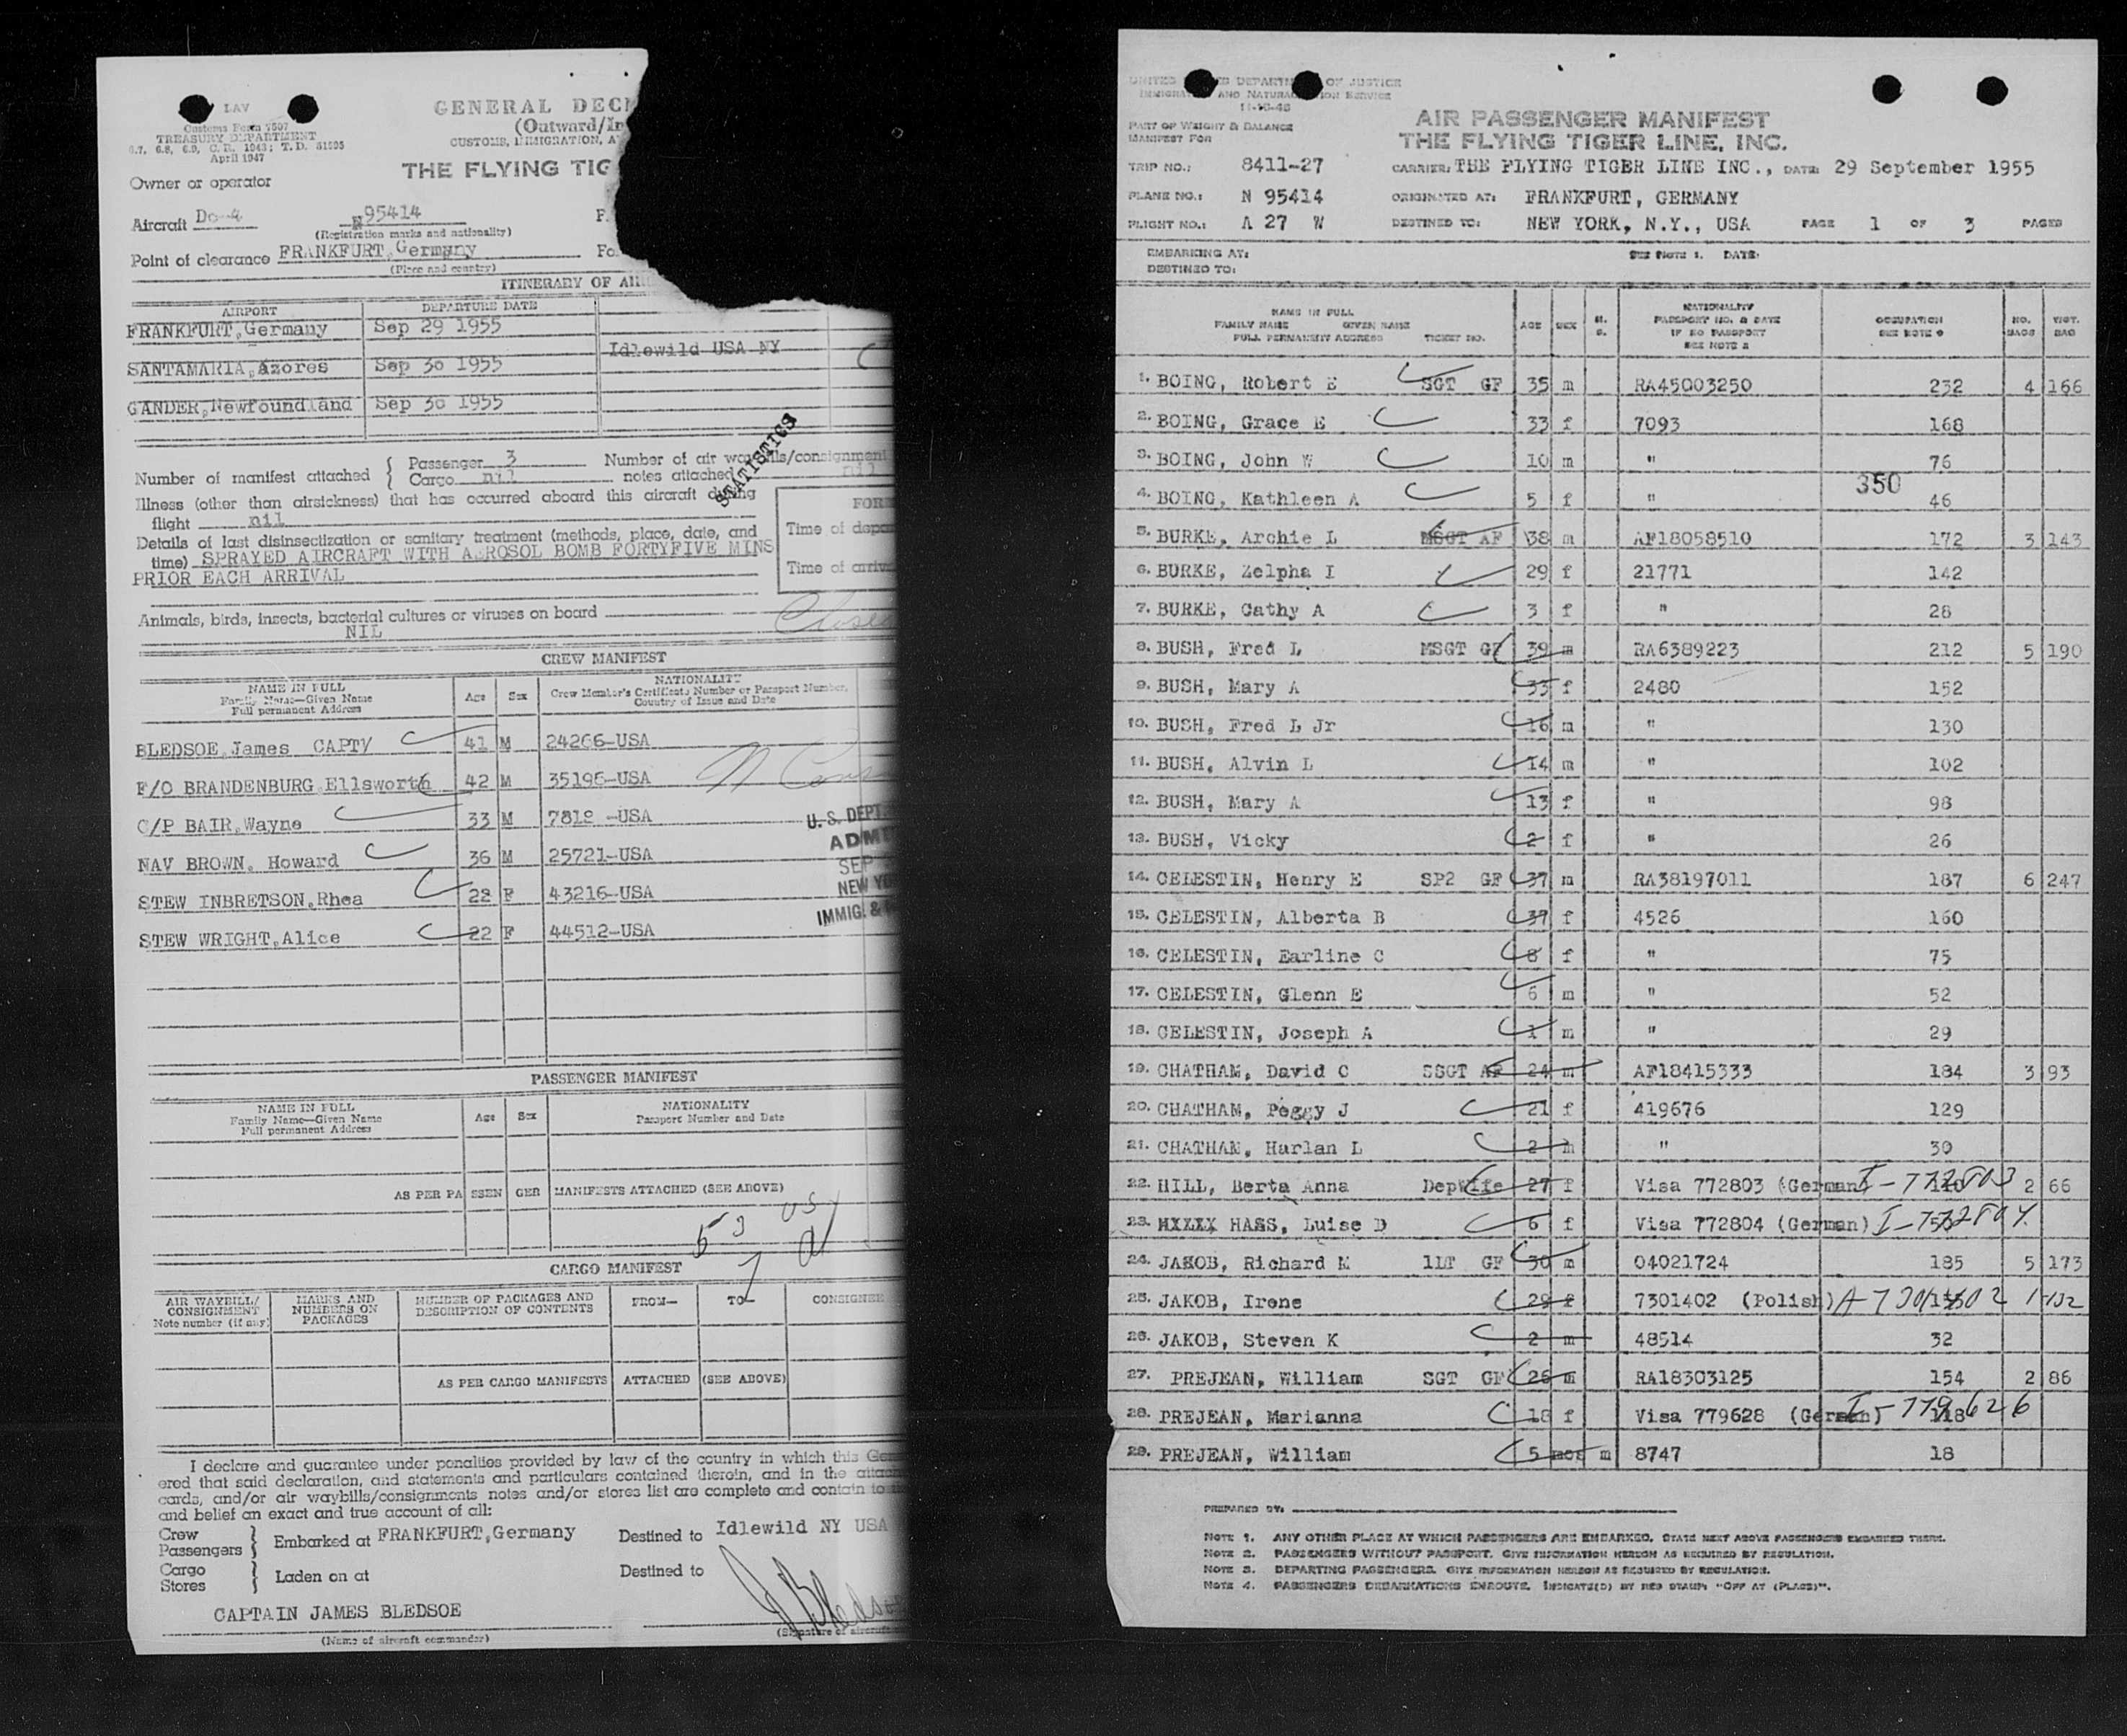 LAV
Customs Form 7507
TREASURY DEPARTMENT
6.7, 6.8, 6.9, C. R. 1943; T. D. 51595
April 1947
GENERAL DECL
(Outward/In
CUSTOMS, IMMIGRATION, A
THE FLYING TIG
Owner or operator
Aircraft Dc-4 N95414
(Registration marks and nationality)
Point of clearance FRANKFURT,Germany Fo
(Place and country)
ITINERARY OF AIR
AIRPORT DEPARTURE DATE
FRANKFURT,Germany Sep 29 1955
Idlewild USA NY
SANTAMARIA,Azores Sep 30 1955
GANDER,Newfoundland Sep 30 1955
STATISTICS
Number of manifest attached { Passenger 3 Number of air waybills/consignment
Cargo nil notes attached nil
Illness (other than airsickness) that has occurred aboard this aircraft during
flight nil
FOR
Details of last disinsectization or sanitary treatment (methods, place, date, and
Time of depar
time) SPRAYED AIRCRAFT WITH AEROSOL BOMB FORTYFIVE MINS
PRIOR EACH ARRIVAL
Time of arriva
Animals, birds, insects, bacterial cultures or viruses on board
NIL
CREW MANIFEST
NAME IN FULL Age Sex NATIONALITY
Family Name—Given Name Crew Member's Certificate Number or Passport Number,
Full permanent Address Country of Issue and Date
BLEDSOE,James CAPT 41 M 24266-USA
F/O BRANDENBURG Ellsworth 42 M 35196-USA
C/P BAIR,Wayne 33 M 7812 -USA
NAV BROWN, Howard 36 M 25721-USA
STEW INBRETSON,Rhea 22 F 43216-USA
STEW WRIGHT,Alice 22 F 44512-USA
U. S. DEPT.
ADMI
SEP
NEW YO
IMMIG. &
PASSENGER MANIFEST
NAME IN FULL Age Sex NATIONALITY
Family Name—Given Name Passport Number and Date
Full permanent Address
AS PER PASSENGER MANIFESTS ATTACHED (SEE ABOVE)
53 US
7 a
CARGO MANIFEST
AIR WAYBILL/ MARKS AND NUMBER OF PACKAGES AND FROM— TO— CONSIGNEE
CONSIGNMENT NUMBERS ON DESCRIPTION OF CONTENTS
Note number (if any) PACKAGES
AS PER CARGO MANIFESTS ATTACHED (SEE ABOVE)
I declare and guarantee under penalties provided by law of the country in which this Gen
ered that said declaration, and statements and particulars contained therein, and in the attac
cards, and/or air waybills/consignments notes and/or stores list are complete and contain to
and belief an exact and true account of all:
Crew
Passengers } Embarked at FRANKFURT,Germany Destined to Idlewild NY USA
Cargo
Stores } Laden on at Destined to
CAPTAIN JAMES BLEDSOE
(Name of aircraft commander) (Signature of aircraft
UNITED STATES DEPARTMENT OF JUSTICE
IMMIGRATION AND NATURALIZATION SERVICE
11-18-48
PART OF WEIGHT & BALANCE
MANIFEST FOR
AIR PASSENGER MANIFEST
THE FLYING TIGER LINE, INC.
TRIP NO.: 8411-27 CARRIER: THE FLYING TIGER LINE INC., DATE: 29 September 1955
PLANE NO.: N 95414 ORIGINATED AT: FRANKFURT, GERMANY
FLIGHT NO.: A 27 W DESTINED TO: NEW YORK, N.Y., USA PAGE 1 OF 3 PAGES
EMBARKING AT: SEE NOTE 1. DATE:
DESTINED TO:
NAME IN FULL
FAMILY NAME GIVEN NAME
FULL PERMANENT ADDRESS TICKET NO.
AGE SEX M. S.
NATIONALITY
PASSPORT NO. & DATE
IF NO PASSPORT
SEE NOTE 2
OCCUPATION
SEE NOTE 3
NO. BAGS WGT. BAG
1. BOING, Robert E SGT GF 35 m RA45003250 232 4 166
2. BOING, Grace E 33 f 7093 168
3. BOING, John W 10 m " 76
350
4. BOING, Kathleen A 5 f " 46
5. BURKE, Archie L MSGT AF 38 m AF18058510 172 3 143
6. BURKE, Zelpha I 29 f 21771 142
7. BURKE, Cathy A 3 f " 28
8. BUSH, Fred L MSGT GF 39 m RA6389223 212 5 190
9. BUSH, Mary A 33 f 2480 152
10. BUSH, Fred L Jr 16 m " 130
11. BUSH, Alvin L 14 m " 102
12. BUSH, Mary A 13 f " 98
13. BUSH, Vicky 2 f " 26
14. CELESTIN, Henry E SP2 GF 37 m RA38197011 187 6 247
15. CELESTIN, Alberta B 37 f 4526 160
16. CELESTIN, Earline C 8 f " 75
17. CELESTIN, Glenn E 6 m " 52
18. CELESTIN, Joseph A 1 m " 29
19. CHATHAM, David C SSGT AF 24 m AF18415333 184 3 93
20. CHATHAM, Peggy J 21 f 419676 129
21. CHATHAM, Harlan L 2 m " 30
22. HILL, Berta Anna DepWife 27 f Visa 772803 (German) I-772803 2 66
23. HASS, Luise D 6 f Visa 772804 (German) I-772804
24. JAKOB, Richard M 1LT GF 30 m 04021724 185 5 173
25. JAKOB, Irene 29 f 7301402 (Polish) A-7301402 1-132
26. JAKOB, Steven K 2 m 48514 32
27. PREJEAN, William SGT GF 26 m RA18303125 154 2 86
28. PREJEAN, Marianna 18 f Visa 779628 (German) 118 I-779626
29. PREJEAN, William 5 mos m 8747 18
PREPARED BY:
NOTE 1. ANY OTHER PLACE AT WHICH PASSENGERS ARE EMBARKED. STATE NEXT ABOVE PASSENGERS EMBARKED THERE.
NOTE 2. PASSENGERS WITHOUT PASSPORT. GIVE INFORMATION HEREON AS REQUIRED BY REGULATION.
NOTE 3. DEPARTING PASSENGERS. GIVE INFORMATION HEREON AS REQUIRED BY REGULATION.
NOTE 4. PASSENGERS DEBARKATIONS ENROUTE. INDICATE(D) BY RED STAMP "OFF AT (PLACE)".